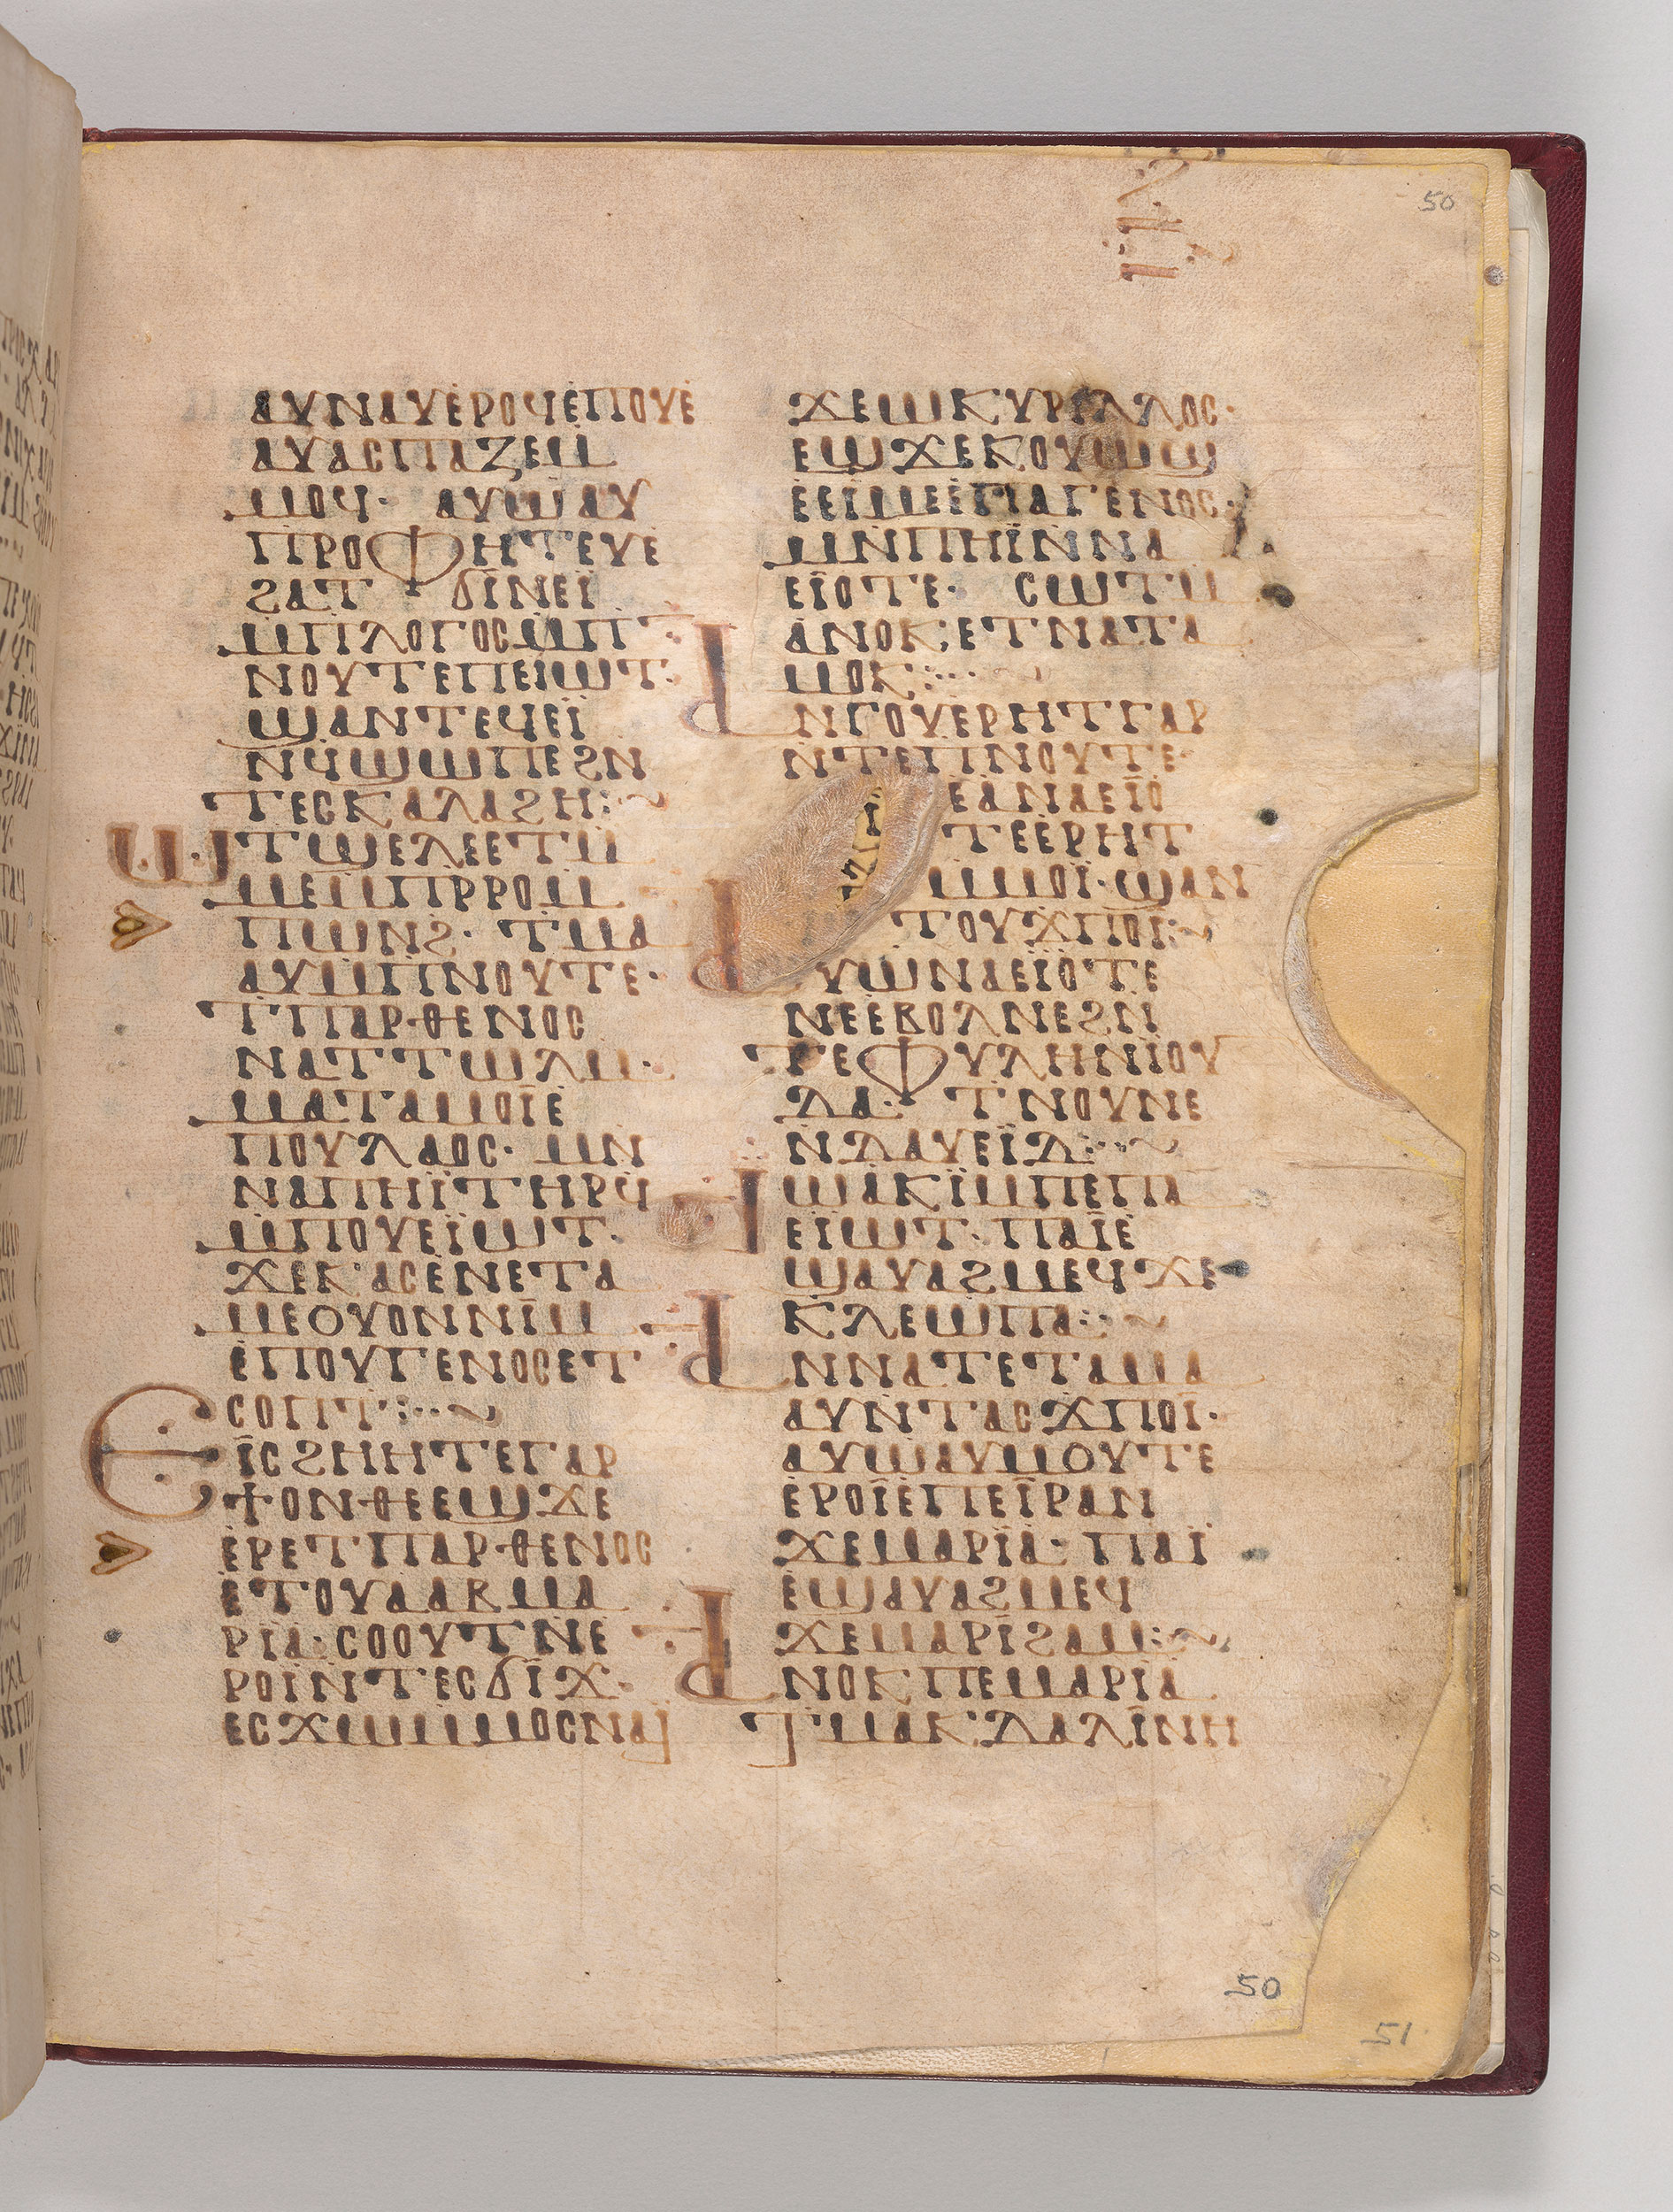 50
ⲁⲩⲛⲁⲩⲉⲣⲟϥⲉⲡⲟⲩⲉ
ⲁⲩⲁⲥⲡⲁⲍⲉⲙ
ⲙⲟϥ· ⲁⲩⲱⲁⲩ
ⲡⲣⲟⲫⲏⲧⲉⲩⲉ
ϩⲁⲧ ϭⲓⲛⲉⲓ̈
ⲙⲡⲗⲟⲅⲟⲥⲙⲡ
ⲛⲟⲩⲧⲉⲡⲉⲓⲱⲧ·
ϣⲁⲛⲧⲉϥⲉⲓ̈
ⲛϥϣⲱⲡⲉϩⲛ
ⲧⲉⲥⲕⲁⲗⲁϩⲏ:~
ⲱ ⲧϣⲉⲗⲉⲉⲧⲙ
ⲙⲉⲙⲡⲣⲣⲟⲙ
ⲡⲱⲛϩ· ⲧⲙⲁ
ⲁⲩⲙⲡⲛⲟⲩⲧⲉ·
ⲧⲡⲁⲣⲑⲉⲛⲟⲥ
ⲛⲁⲧⲧⲱⲗⲙ·
ⲙⲁⲧⲁⲙⲟⲓ̈ⲉ
ⲡⲟⲩⲗⲁⲟⲥ· ⲙⲛ
ⲛⲁⲡⲏⲓ̈ⲧⲏⲣϥ
ⲙⲡⲟⲩⲉⲓ̈ⲱⲧ·
ϫⲉⲕⲁⲥⲉⲛⲉⲧⲁ
ⲙⲉⲟⲩⲟⲛⲛⲓⲙ
ⲉⲡⲟⲩⲅⲉⲛⲟⲥⲉⲧ
ⲥⲟⲡⲧ:··~
ⲉ ⲓⲥϩⲏⲏⲧⲉⲅⲁⲣ
ϯⲟⲛⲑⲉⲉϣϫⲉ
ⲉⲣⲉⲧⲡⲁⲣⲑⲉⲛⲟⲥ
ⲉⲧⲟⲩⲁⲁⲃⲙⲁ
ⲣⲓⲁ·ⲥⲟⲟⲩⲧⲛⲉ
ⲣⲟⲓ̈ⲛⲧⲉⲥϭⲓϫ·
ⲉⲥϫⲱⲙⲙⲟⲥⲛⲁⲓ̈
ϫⲉⲱⲕⲩⲣⲓⲗⲗⲟⲥ·
ⲉϣϫⲉⲕⲟⲩⲱϣ
ⲉⲉⲓ̈ⲙⲉⲉⲡⲁⲅⲉⲛⲟⲥ·
ⲙⲛⲡⲏⲓ̈ⲛⲛⲁ
ⲉⲓ̈ⲟⲧⲉ· ⲥⲱⲧⲙ
ⲁⲛⲟⲕ·ⲉⲧⲛⲁⲧⲁ
ⲙⲟⲕ:··
ⲁ ⲛⲅⲟⲩⲉⲣⲏⲧⲅⲁⲣ
ⲛⲧⲉⲡⲛⲟⲩⲧⲉ·
ⲉⲁⲛⲁⲉⲓ̈ⲟ
ⲧⲉⲉⲣⲏⲧ
ⲙⲙⲟⲓ̈·ϣⲁⲛ
ⲧⲟⲩϫⲡⲟⲓ̈:~
ⲁ ⲩⲱⲛⲁⲉⲓ̈ⲟⲧⲉ
ⲛⲉⲉⲃⲟⲗⲛⲉϩⲛ
ⲧⲉⲫⲩⲗⲏⲛⲓ̈ⲟⲩ
ⲇⲁ· ⲧⲛⲟⲩⲛⲉ
ⲛⲇⲁⲩⲉⲓⲇ:··~
ⲓ̈ ⲱⲁⲕⲓ̈ⲙⲡⲉⲡⲁ
ⲉⲓ̈ⲱⲧ·ⲡⲁⲓ̈ⲉ
ϣⲁⲩⲁϩⲙⲉϥϫⲉ
ⲕⲗⲉⲱⲡⲁ:·~
ⲁ ⲛⲛⲁⲧⲉⲧⲁⲙⲁ
ⲁⲩⲛⲧⲁⲥϫⲡⲟⲓ̈·
ⲁⲩⲱⲁⲩⲙⲟⲩⲧⲉ
ⲉⲣⲟⲓ̈ⲉⲡⲉⲓ̈ⲣⲁⲛ
ϫⲉⲙⲁⲣⲓⲁ·ⲡⲁⲓ̈
ⲉϣⲁⲩⲁϩⲙⲉϥ
ϫⲉⲙⲁⲣⲓϩⲁⲙ:~
ⲁ ⲛⲟⲕⲡⲉⲙⲁⲣⲓⲁ
ⲧⲙⲁⲕⲇⲁⲗⲓⲛⲏ
50
51